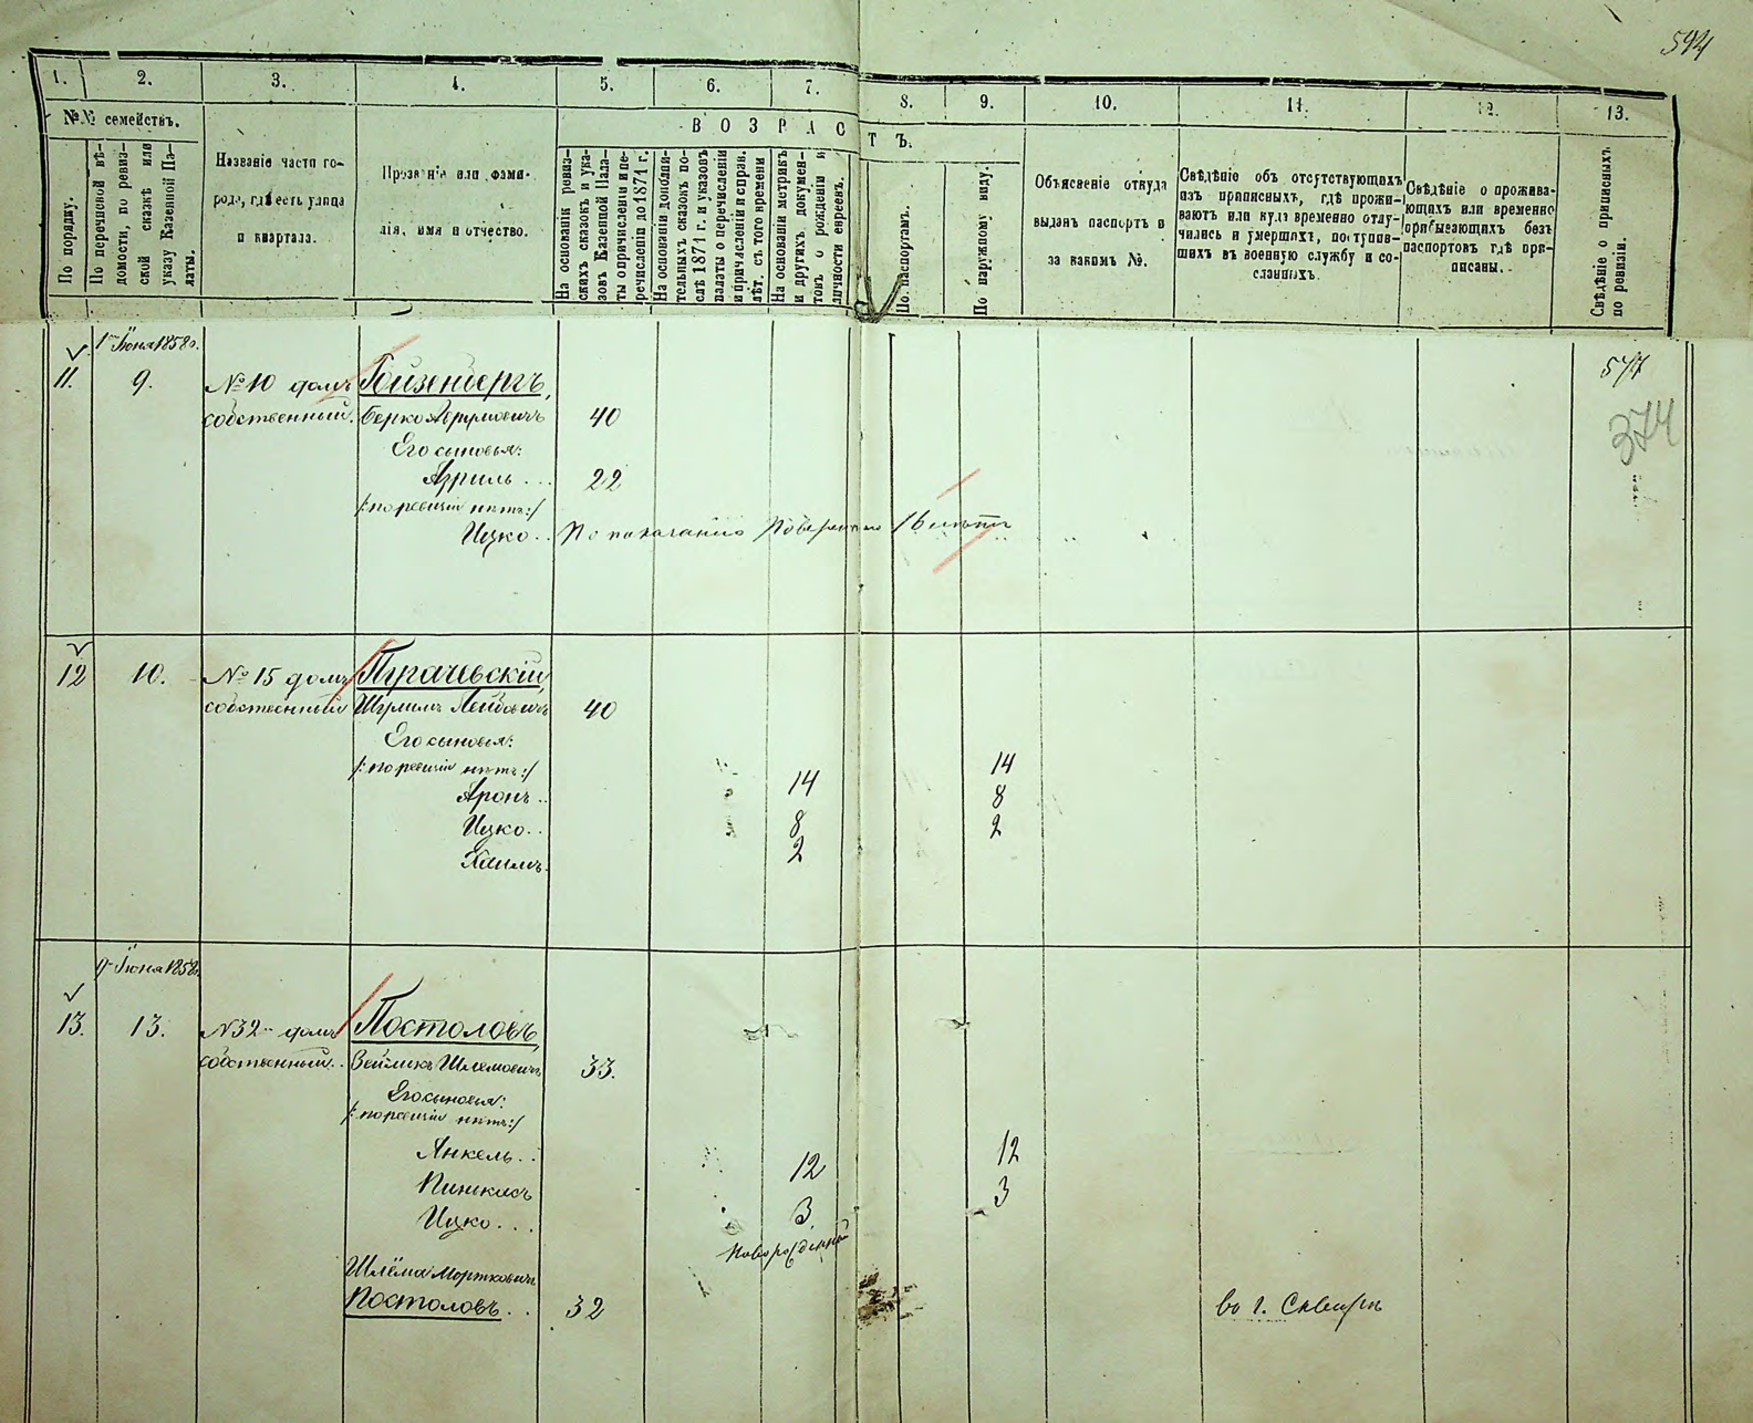 594
1. 2. 3. 4. 5. 6. 7. 8. 9. 10. 11. 12. 13.
№№ семействъ.
По порядку.
По перечисной вѣ-
домости, по ревиз-
ской сказкѣ или
указу Казенной Па-
латы.
Названіе части го-
рода, гдѣ есть улица
и квартала.
Прозваніе или фами-
лія, имя и отчество.
ВОЗРАСТЪ.
На основаніи ревиз-
скихъ сказокъ и ука-
зовъ Казенной Пала-
ты о причисленіи и пе-
речисленіи до 1871 г.
На основаніи дополни-
тельныхъ сказокъ по-
слѣ 1871 г. и указовъ
палаты о перечисленіи
и причисленіи и справ.
лѣт. съ того времени
На основаніи метрикъ
и другихъ докумен-
товъ о рожденіи и
личности евреевъ.
По паспортамъ.
По наружному виду.
Объясненіе откуда
выданъ паспортъ и
за какимъ №.
Свѣдѣніе объ отсутствующихъ
изъ приписныхъ, гдѣ прожи-
ваютъ или куда временно отлу-
чились и умершихъ, поступив-
шихъ въ военную службу и со-
сланныхъ.
Свѣдѣніе о прожива-
ющихъ или временно
прибывающихъ безъ
паспортовъ гдѣ при-
писаны.
Свѣдѣніе о приписныхъ
по ревизіи.
1го Іюня 1858 г.
11. 9. №10 домъ Гойзенбергъ,
собственный. Берко Аврумовичъ 40
Его сыновья:
Азриль... 22
/:по ревизіи нѣтъ:/
Ицко.. По показанію Повѣреннаго 16 лѣтъ
374
12 10. №15 домъ Пугачевскій,
собственный Шулимъ Лейбовичъ 40
Его сыновья:
/:по ревизіи нѣтъ:/ 14
Аронъ.. 14 8
Ицко.. 8 2
Хаимъ. 2
9го Іюня 1858 г.
13. 13. №32й домъ Постоловъ,
собственный.. Зейликъ Шлемовичъ 33.
Его сыновья:
/:по ревизіи нѣтъ:/
Янкель.. 12 12
Пинкасъ 3. 3
Ицко... Новорожденный
Шлёма Мортковичъ
Постоловъ.. 32 во г. Сквирѣ